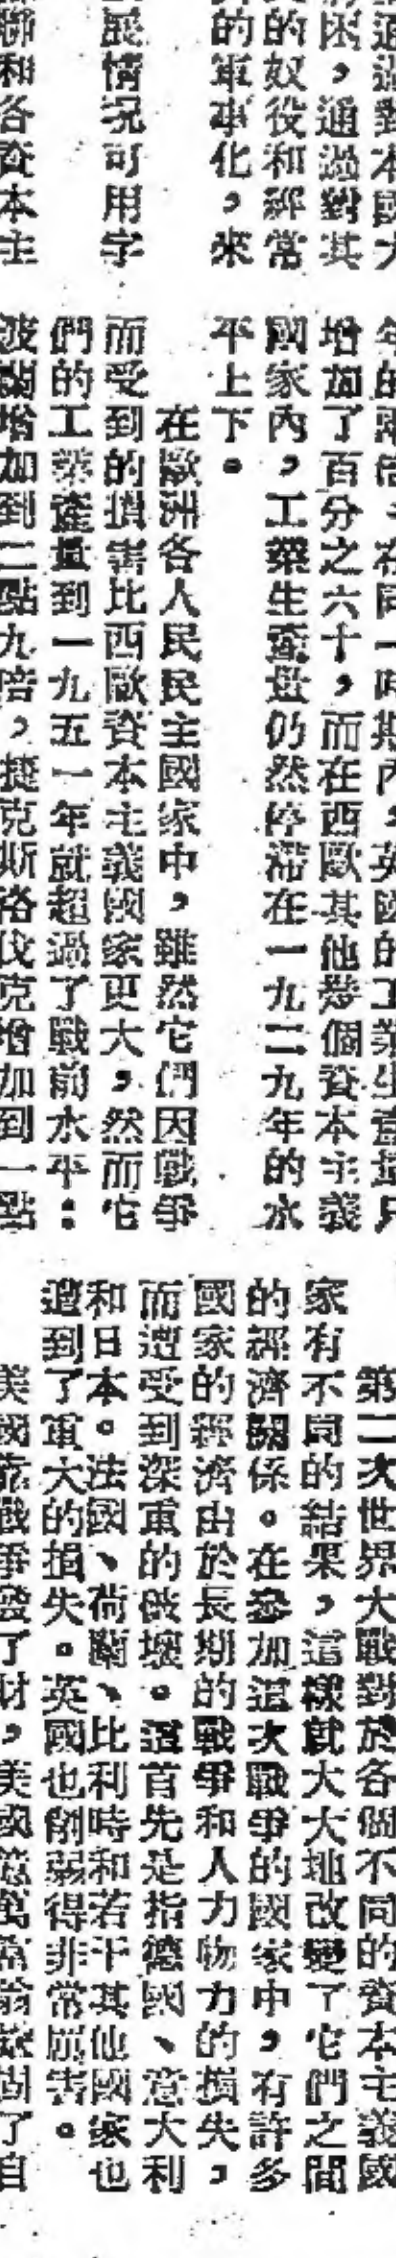 通過對本國大
困，通過對其
的奴役和經常
的軍事化，來
展情况可用字
聯和各資本主
年的兩倍，在同一時期內，英國的工業生產量只
增加了百分之六十，而在西歐其他幾個資本主義
國家內，工業生產量仍然停滯在一九二九年的水
平上下。
在歐洲各人民民主國家中，雖然它們因戰爭
而受到的損害比西歐資本主義國家更大，然而它
們的工業產量到一九五一年就超過了戰前水平：
波蘭增加到二點九倍，捷克斯洛伐克增加到一點
第二次世界大戰對於各個不同的資本主義國
家有不同的結果，這樣就大大地改變了它們之間
的經濟關係。在參加這次戰爭的國家中，有許多
國家的經濟由於長期的戰爭和人力物力的損失，
而遭受到深重的破壞。這首先是指德國、意大利
和日本。法國、荷蘭、比利時和若干其他國家也
遭到了重大的損失。英國也削弱得非常厲害。
美國靠戰爭發了財，美國
了自